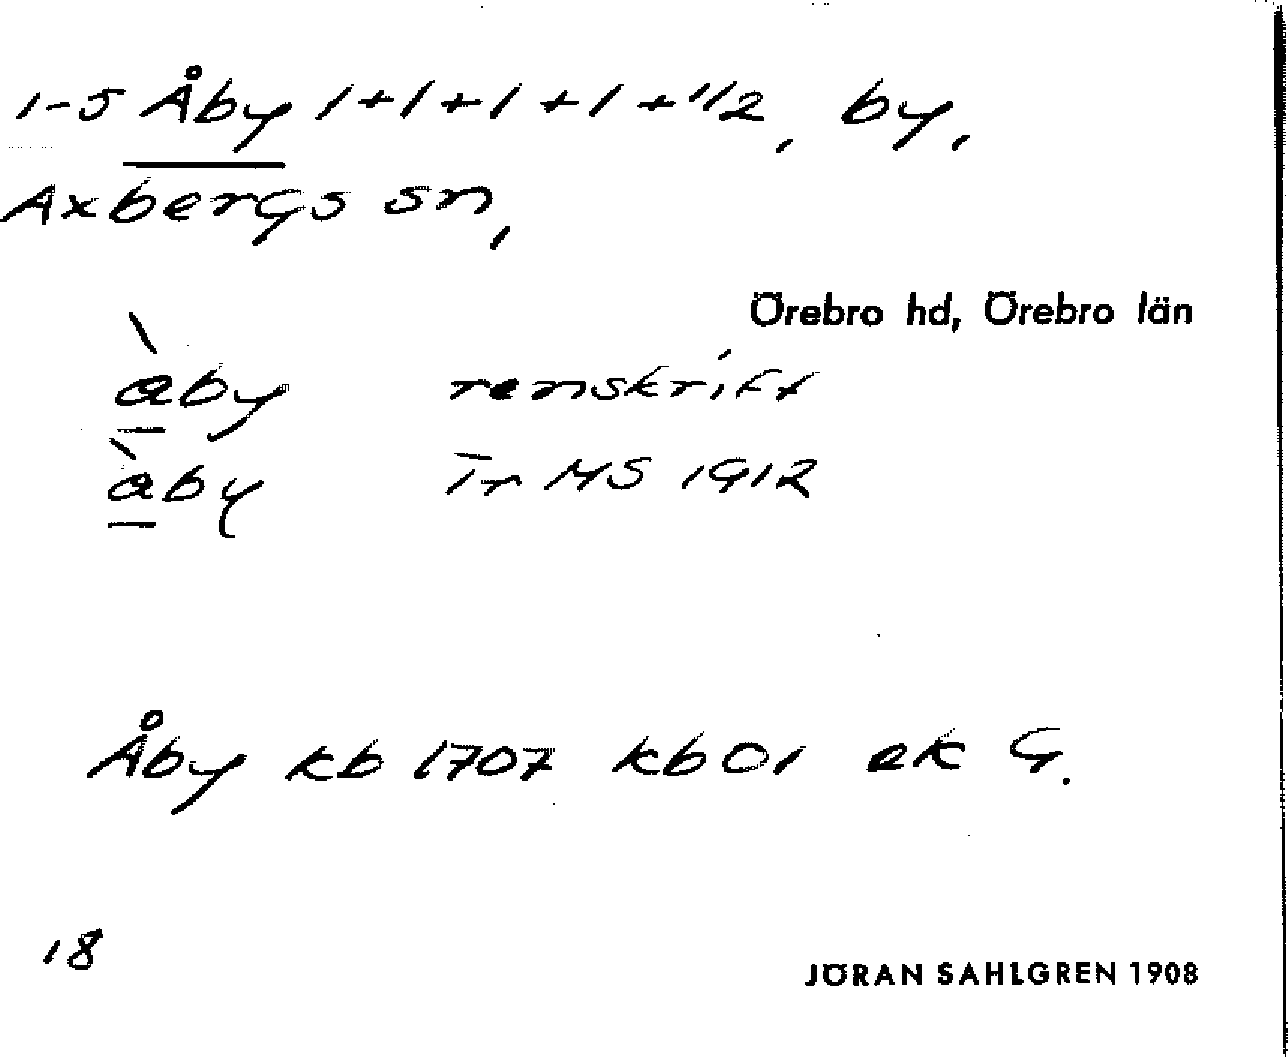 1-5 Åby 1+1+1+1+1/2, by,
Axbergs sn,
Örebro hd, Örebro län
àby renskrift
àby Tr MS 1912
Åby kb 1707 kb 01 ek G.
18
JÖRAN SAHLGREN 1908